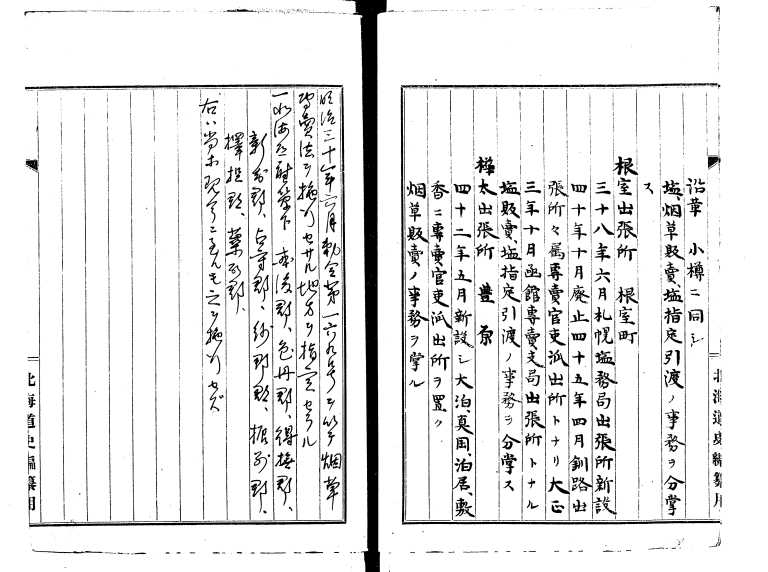 沿革 小樽ニ同シ
塩、烟草販賣、塩指定引渡ノ事務ヲ分掌
ス
根室出張所 根室町
三十八年六月札幌塩務局出張所新設
四十年十月廃止四十五年四月釧路出
張所々属専賣官吏派出所トナリ大正
三年十月函館専賣支局出張所トナル
塩販賣、塩指定引渡ノ事務ヲ分掌ス
樺太出張所 豊原
四十二年五月新設シ大泊、真岡、泊居、敷
香ニ専賣官吏派出所ヲ置ク
烟草販賣ノ事務ヲ掌ル
北海道史編纂用
明治三十七年六月勅令第一六九号ヲ以テ烟草
専賣法ヲ施行セサル地方ヲ指定セラル
一北海道廳管下 色丹郡、得撫郡、
新知郡、占守郡、紗那郡、振別郡、
擇捉郡、蘂取郡、
右ハ尚ホ現今ニ至ルモ之ヲ施行セズ
北海道史編纂用